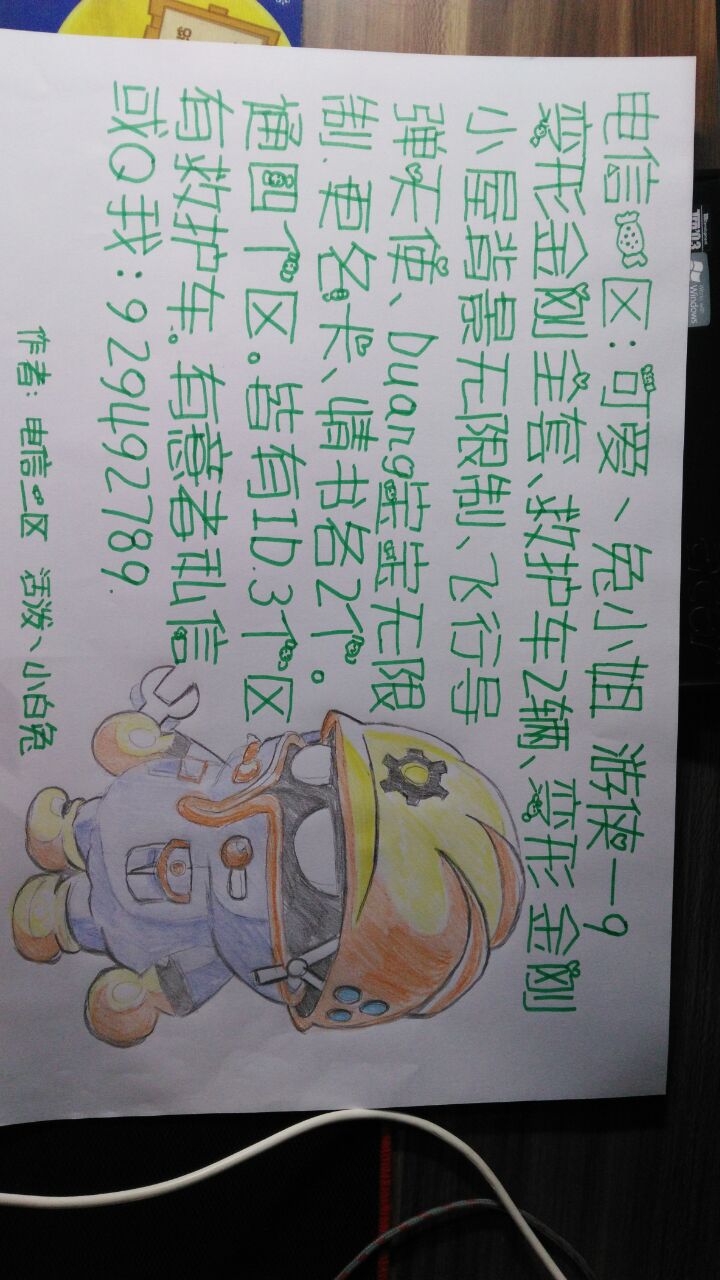 电信 区:可爱丶兔小姐 游侠一9
变形金刚全套、救护车2辆、变形金刚
小屋背景无限制、飞行号
弹天使、Duang宝宝无限
制.更名卡、情书各2个。
通四个区。皆有ID.3个区
有救护车。有意者私信
或Q我:929492789.
作者:电信一区 活泼丶小白兔
Windows
acer